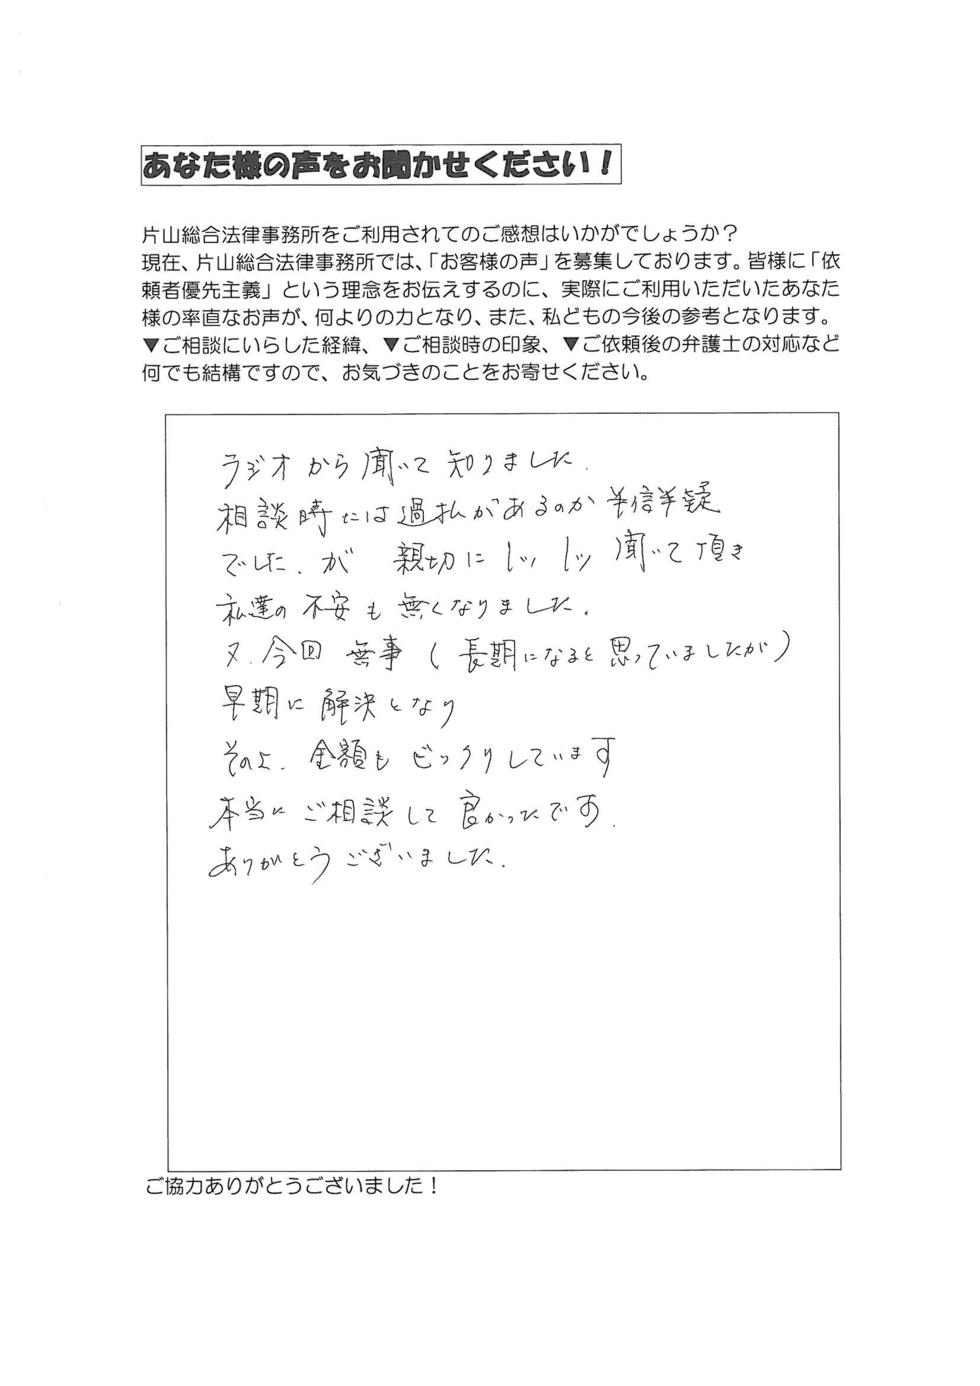 あなた様の声をお聞かせください！
片山総合法律事務所をご利用されてのご感想はいかがでしょうか？
現在、片山総合法律事務所では、「お客様の声」を募集しております。皆様に「依
頼者優先主義」という理念をお伝えするのに、実際にご利用いただいたあなた
様の率直なお声が、何よりの力となり、また、私どもの今後の参考となります。
▼ご相談にいらした経緯、▼ご相談時の印象、▼ご依頼後の弁護士の対応など
何でも結構ですので、お気づきのことをお寄せください。
ラジオから聞いて知りました.
相談時には過払があるのか半信半疑
でした. が 親切に 1ッ 1ッ 聞いて頂き
私達の不安も無くなりました.
又. 今回 無事 (長期になると思っていましたが)
早期に解決となり
その上. 金額もビックリしています
本当にご相談して良かったです.
ありがとうございました.
ご協力ありがとうございました！